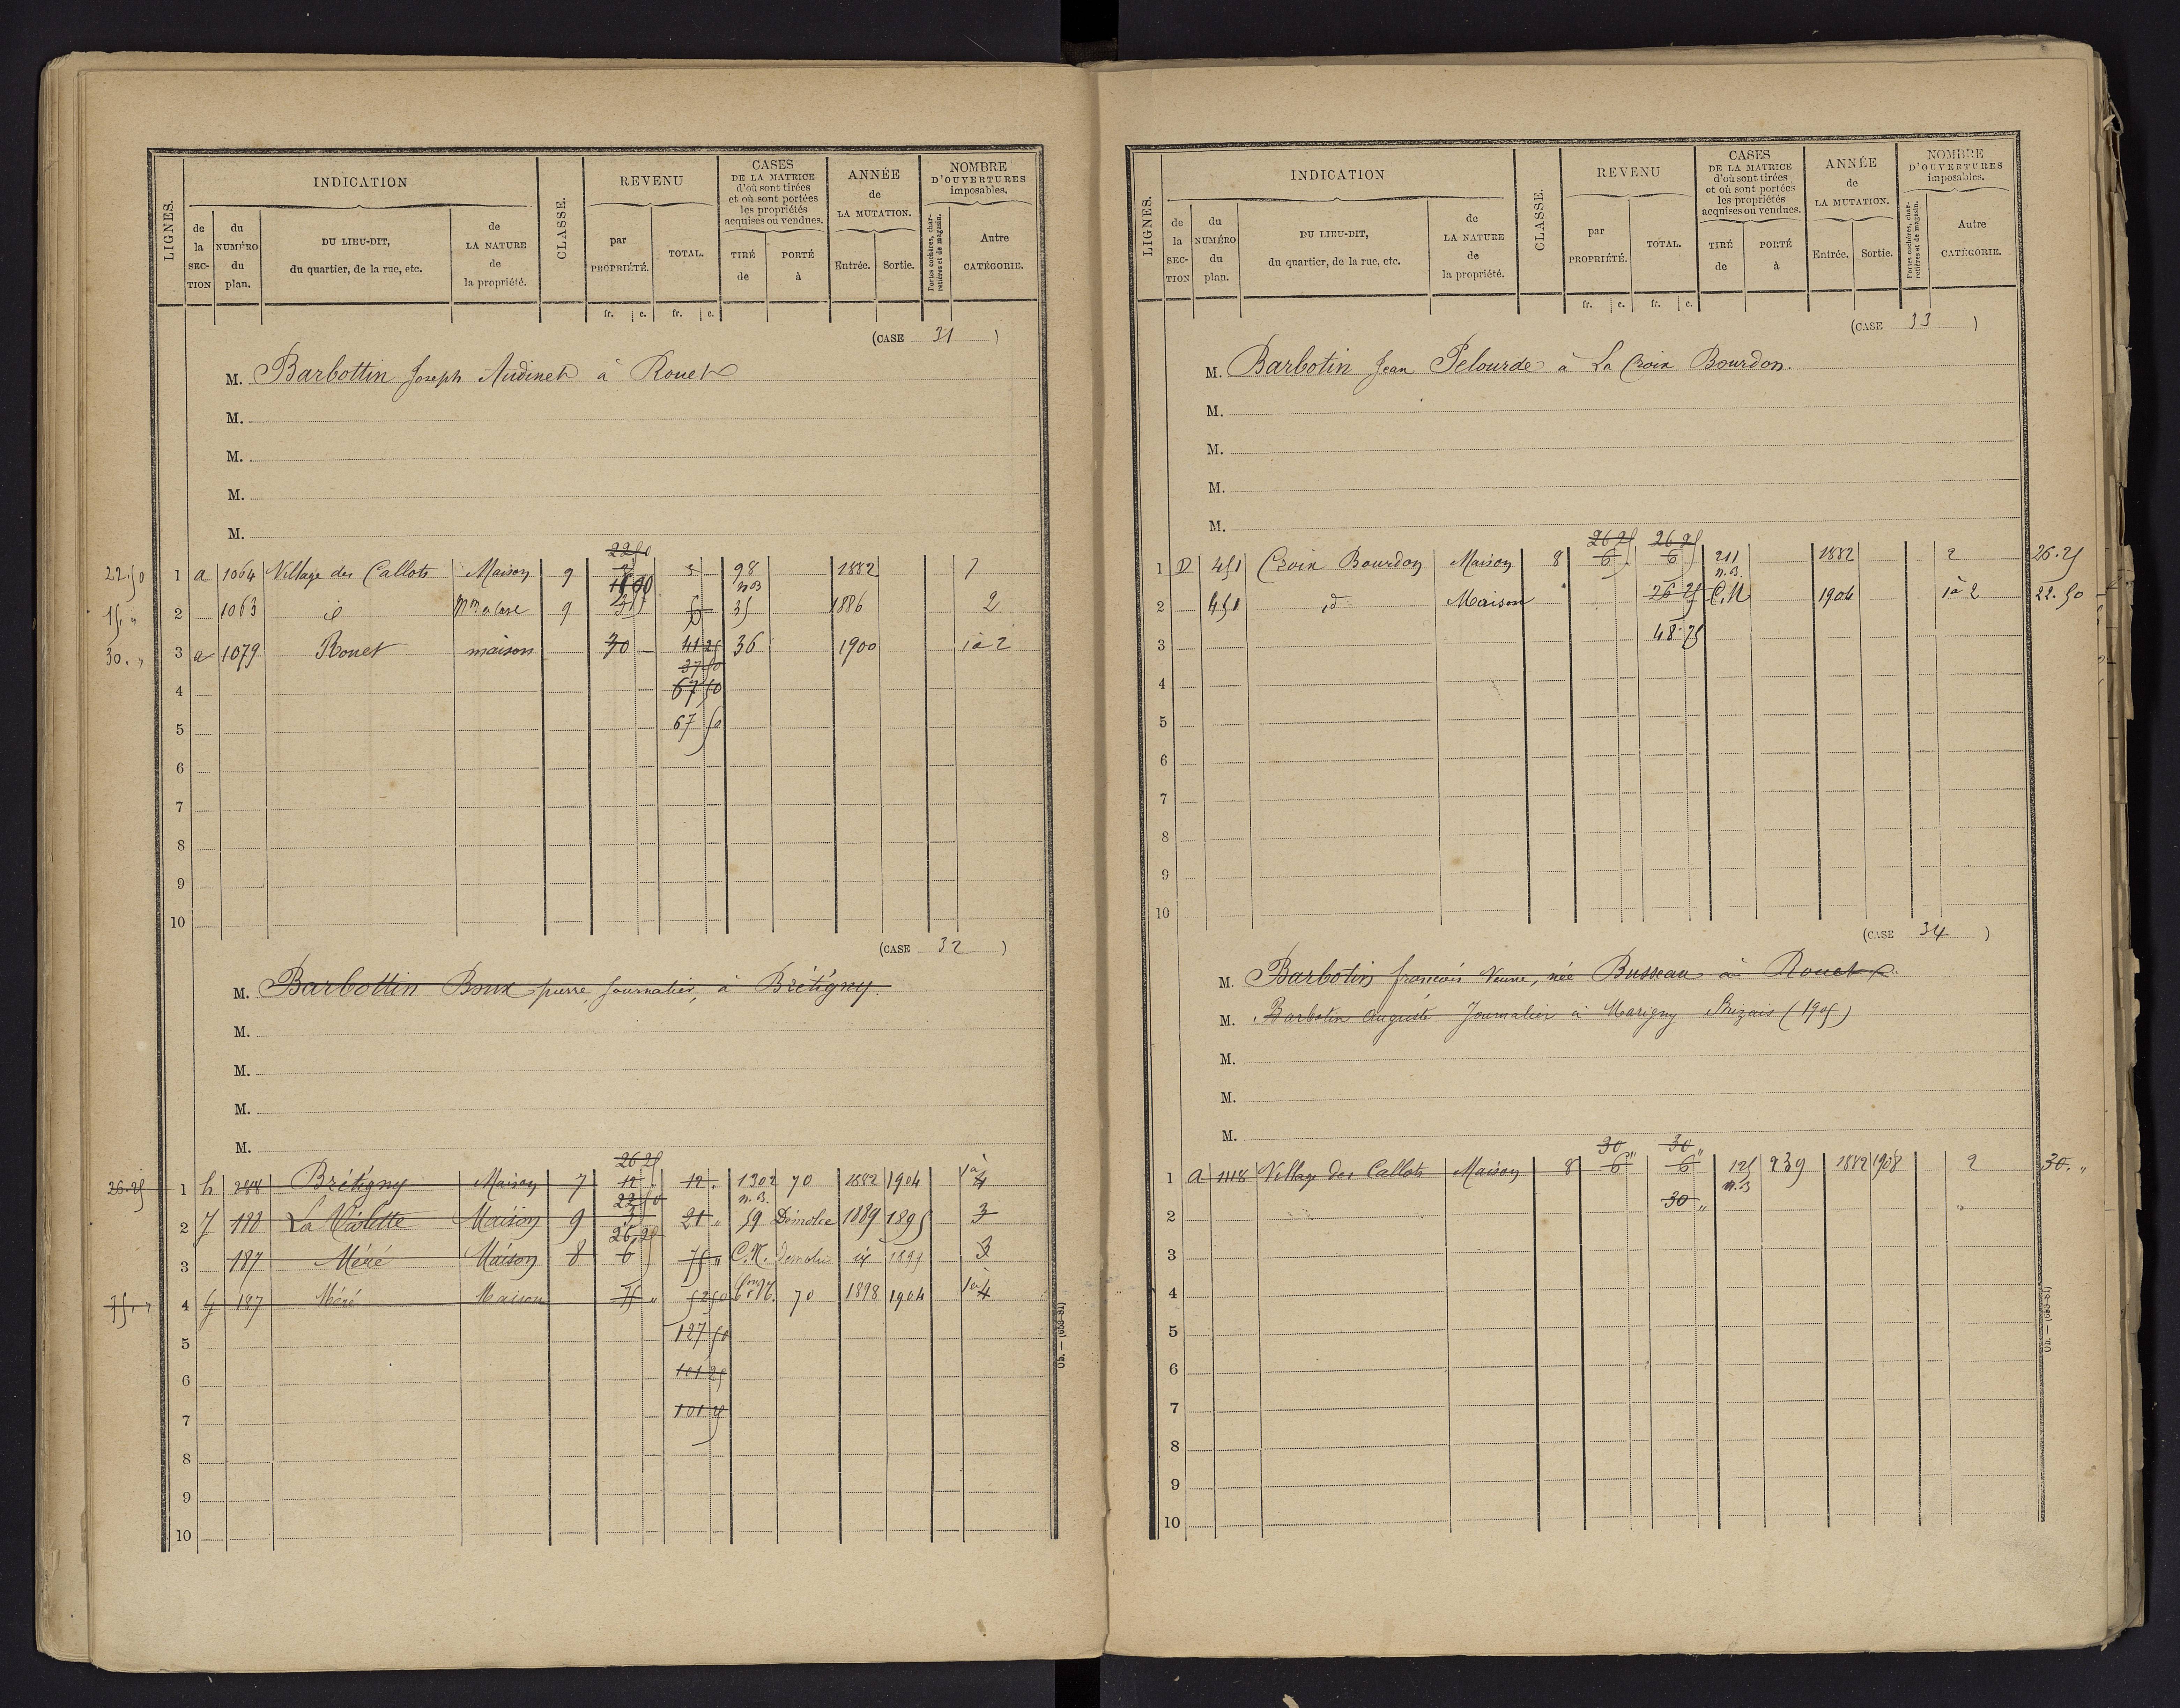 LIGNES.
INDICATION
CLASSE.
REVENU
CASES DE LA MATRICE d'où sont tirées et où sont portées les propriétés acquises ou vendues.
ANNÉE de LA MUTATION.
NOMBRE D'OUVERTURES imposables.
de la SECTION
du NUMÉRO du plan.
DU LIEU-DIT, du quartier, de la rue, etc.
de LA NATURE de la propriété.
par PROPRIÉTÉ.
TOTAL.
TIRÉ de
PORTÉ à
Entrée.
Sortie.
Portes cochères, charretières et de magasin.
Autre CATÉGORIE.
fr. c. fr. c.
(CASE 31 )
M. Barbottin Joseph Audinet à Rouet
M.
M.
M.
M.
22 50
22.50 1 a 1064 Village des Callots Maison 9 3 98 1882 1
n.B
15. " 2 1063 id 9 35 1886 2
30. " 3 a 1079 Rouet maison 30 41 25 36 1900 1 à 2
37 50
4 67 50
5 67 50
6
7
8
9
10
(CASE 32 )
M. Barbottin Boux pierre, Journalier, à Brétigny.
M.
M.
M.
M.
26 25
26.25 1 h 288 Brétigny Maison 7 12 12. 1302 70 1882 1904 1 à 4
22 50 n.B.
2 7 188 La Violette Maison 9 3 21 " 59 Démolie 1889 1895 3
26 25
3 187 Méré Maison 8 6 75 " C.N. Demolie id 1895 3
75. " 4 G 187 Méré Maison 75 " 52 50 70 1898 1904 1 à 4
5 127 50
6 101 25
7 101 25
8
9
10
Ob. — (653-81)
LIGNES.
INDICATION
CLASSE.
REVENU
CASES DE LA MATRICE d'où sont tirées et où sont portées les propriétés acquises ou vendues.
ANNÉE de LA MUTATION.
NOMBRE D'OUVERTURES imposables.
de la SECTION
du NUMÉRO du plan.
DU LIEU-DIT, du quartier, de la rue, etc.
de LA NATURE de la propriété.
par PROPRIÉTÉ.
TOTAL.
TIRÉ de
PORTÉ à
Entrée.
Sortie.
Portes cochères, charretières et de magasin.
Autre CATÉGORIE.
fr. c. fr. c.
(CASE 33 )
M. Barbotin Jean Pelourde à La Croix Bourdon.
M.
M.
M.
M.
26 25 26 25
1 D 451 Croix Bourdon Maison 8 6 6 211 1882 2 26.25
n.B.
2 451 id Maison 26 25 C.N 1904 1 à 2 22.50
3 48.75
4
5
6
7
8
9
10
(CASE 34 )
M. Barbotin francois Veuve, née Busseau à Rouet
M. Barbotin Auguste Journalier à Marigny Brizais (1905)
M.
M.
M.
30 30
1 A 1118 Village des Callots Maison 8 6 " 6 " 125 239 1882 1908 2 30. "
n.B
2 30 "
3
4
5
6
7
8
9
10
Ob. — (653-81)